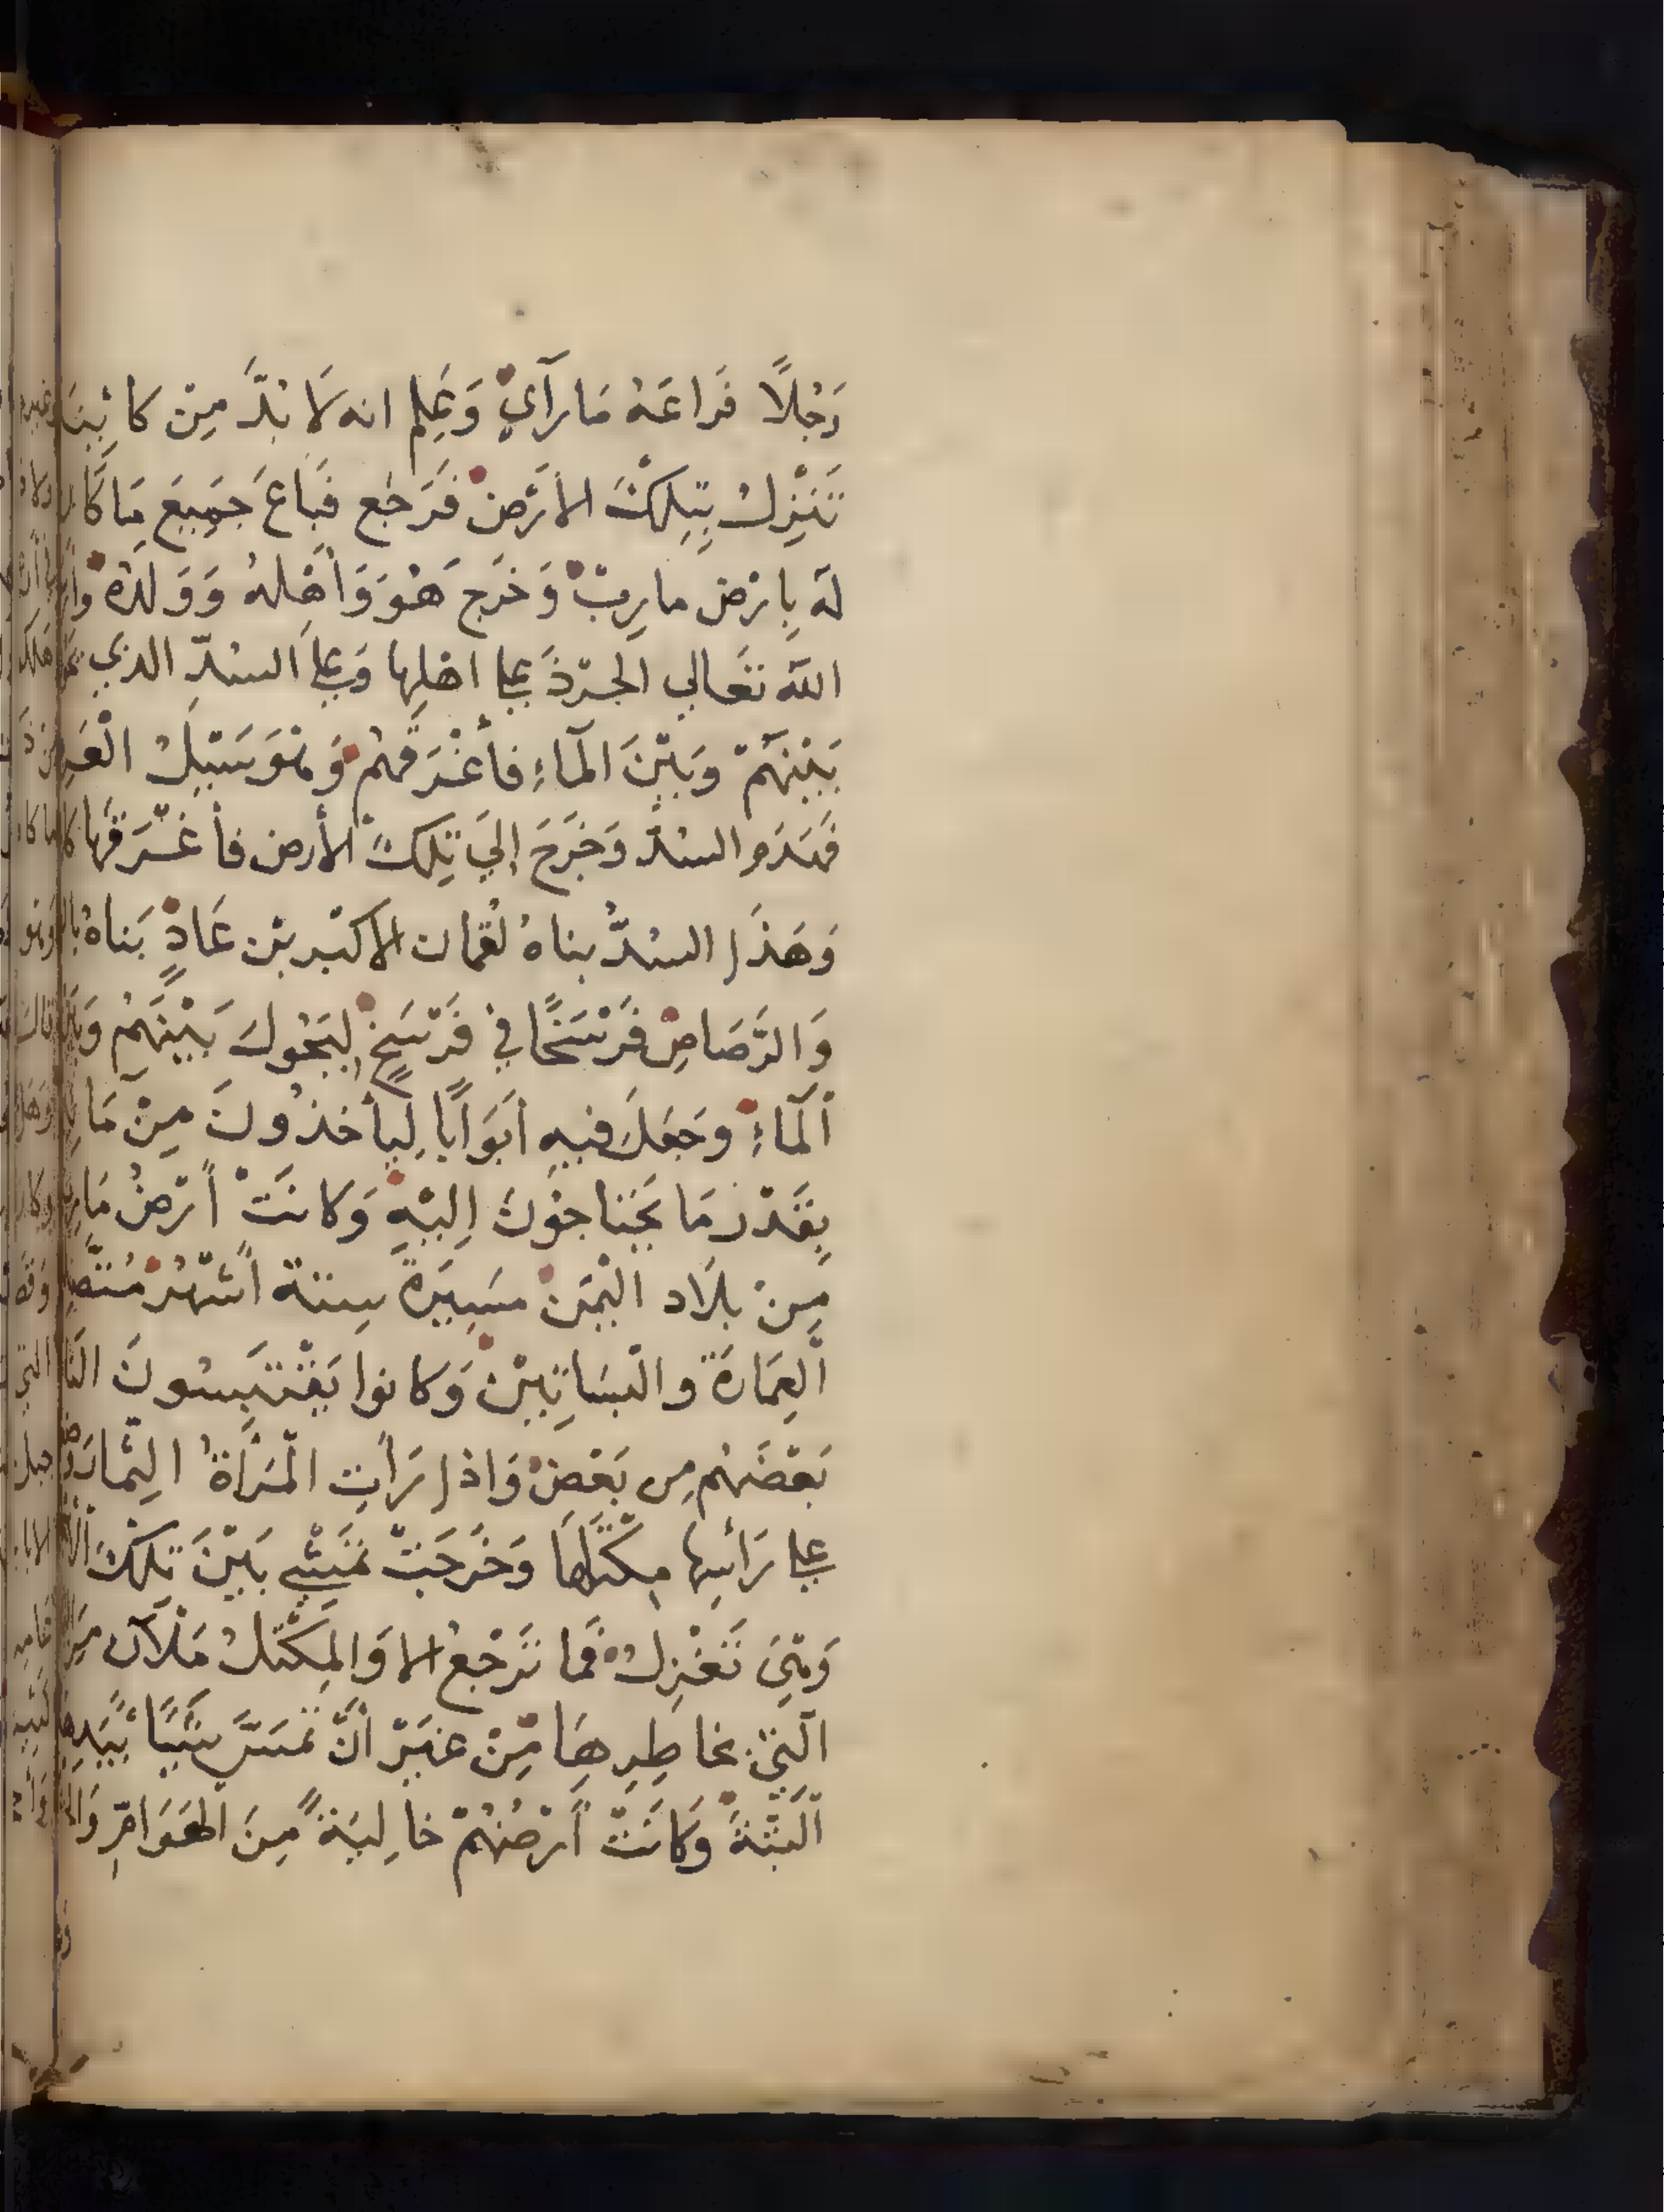 رَجُلًا فَراعَهُ مَا رَآي وَعَلِم انه لَا بُدَّ مِنْ كَائِنَة
تَنْزِلُ بِتِلكَ الأرَض فَرَجَع فَباعَ جَمِيعَ مَا كَان
لَهُ بِارْض مارِبْ وَخرَج هُوَ وَأهْلهُ وَوَلَدُهُ
الله تَعَالي الجرْذَ علي اهْلِها وَعلَي السُدِّ الدي
بَيْنَهُمْ وَبَيْنَ المآءِ فأغْرَقهُمْ وَهْوَ سَيْلُ الْعَرِمِ
فَهَدَم السُدّ وَخَرَجَ إلَي تِلكَ الأرض فأغْرَقَهَا
وَهَذَا السُدُّ بناهُ لُقْمَان الاكبْر بْن عَادٍ بَناهُ
وَالرَّصَاصِ فَرْسَخًا في فَرْسَخٍ لِيَحُولَ بَيْنَهُمْ وَبَيْنَ
اَلمآءِ وَجَعَلَ فيهِ اَبَوَابًا لِيأخذُونَ مِنْ مَا
بِقَدْر مَا يَحْتاجُونَ اِلَيْهِ وَكانَتْ أرْضُ مَارِب
مِنْ بِلَاد الْيَمَنْ مَسِيَرَةَ سِتة أشْهُرْ مُتَّصِل
اَلعِمَارَة والْبسَاتِيْن وَكانوا يَقْتَبِسُونَ النَّا
بَعْضَهُم مِن بَعْض وَاذا رَأتِ الْمَرْأةُ الثِمَار
علي رَأسِها مِكْتَلهَا وَخَرَجَتْ تَمَشِي بَيْنَ تِلكَ
وَهِيَ تَغْزِلُ فَما تَرْجْعُ الا وَالمِكْتَلُ مَلآن مِنَ
الّتِيْ بخاطِرِهَا مِنْ غَيْرْ أنْ تَمسَّ شَيًا بِيَدِهَا
اَلْبَتَّةَ وَكانَتْ أرْضُهُمْ خَاليَةً مِنَ الهَوَامِّ